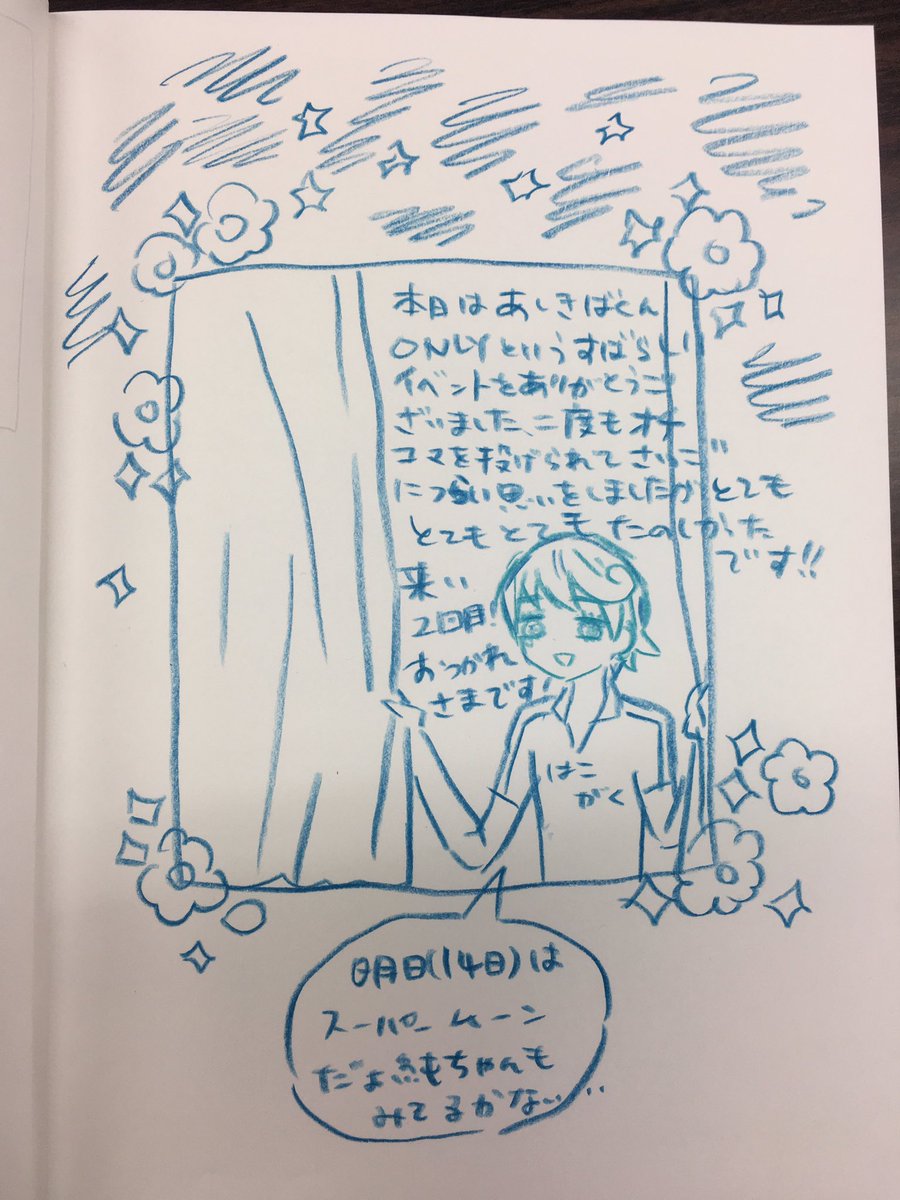 本日はあしきばくん
ONLYというすばらしい
イベントをありがとうご
ざいました、二度もオチ
コマを投げられてさいご
につらい思いをしましたがとても
とてもとてもたのしかった
です!!
来い
2回目!
おつかれ
さまです!
はこ
がく
明日(14日)は
スーパームーン
だよ純ちゃんも
みてるかな…..